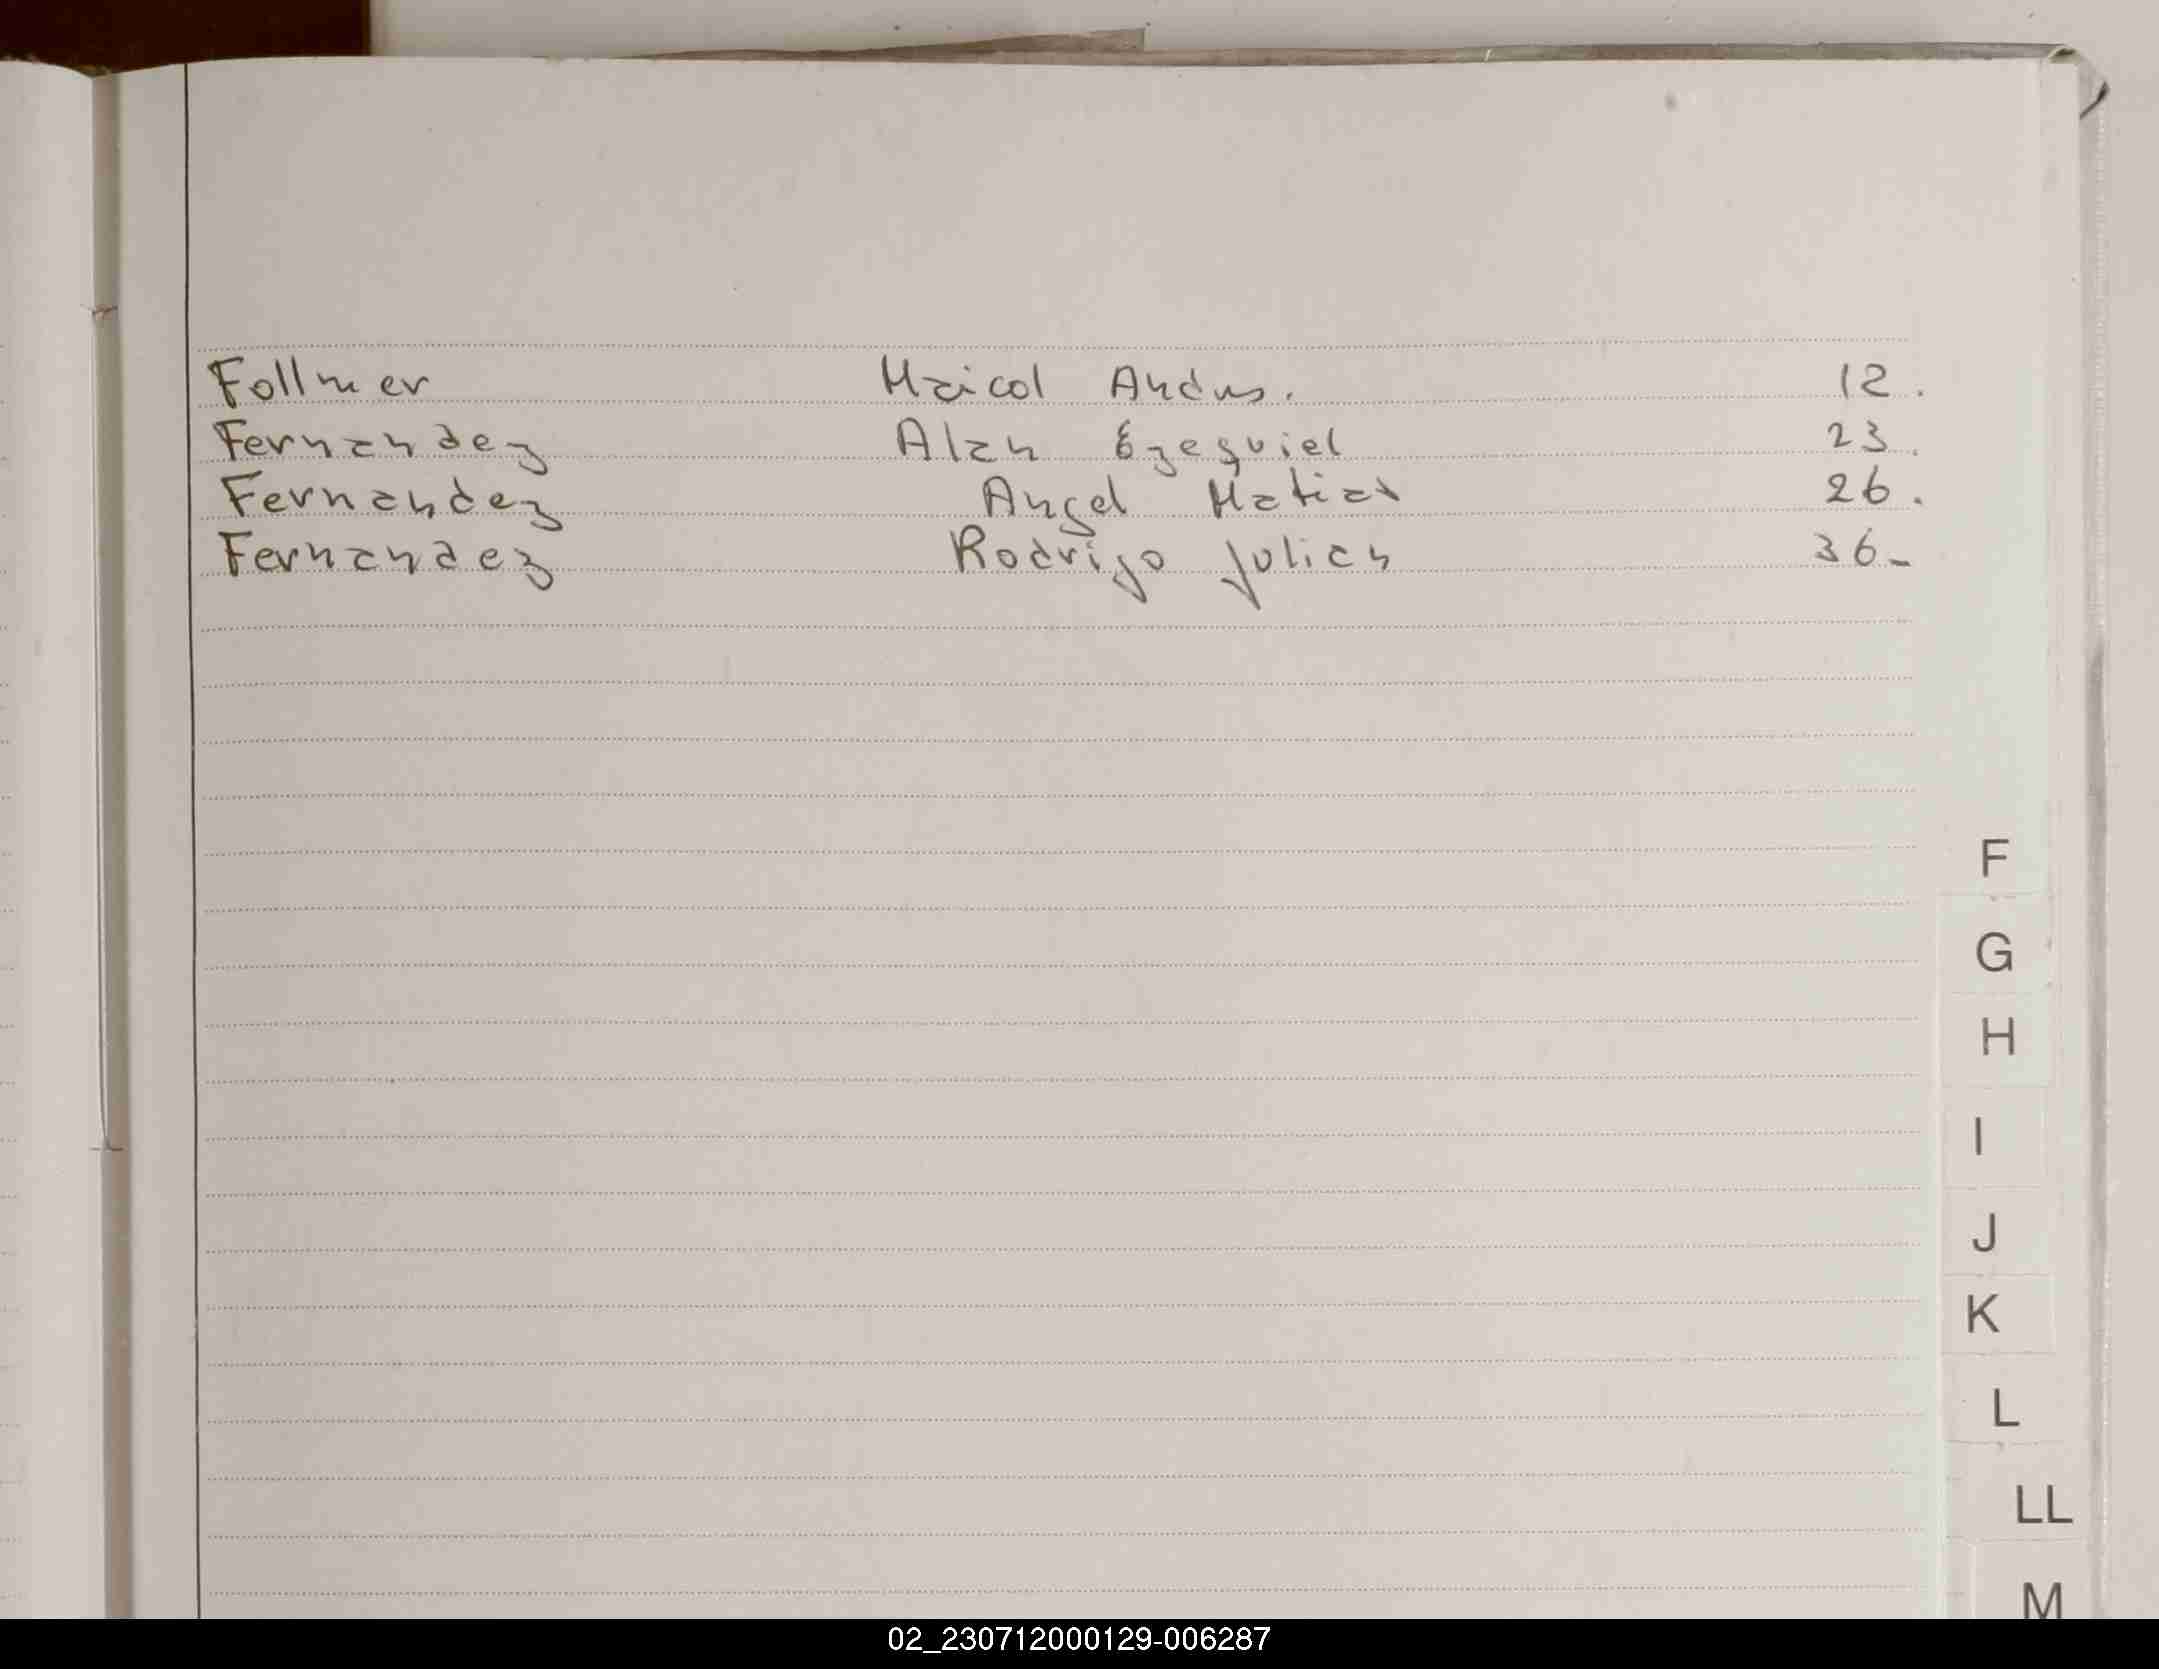 Follmer Maicol Andres. 12.
Fernandez Alan Ezequiel 23.
Fernandez Angel Matias 26.
Fernandez Rodrigo Julian 36-
F
G
H
I
J
K
L
LL
M
02_230712000129-006287